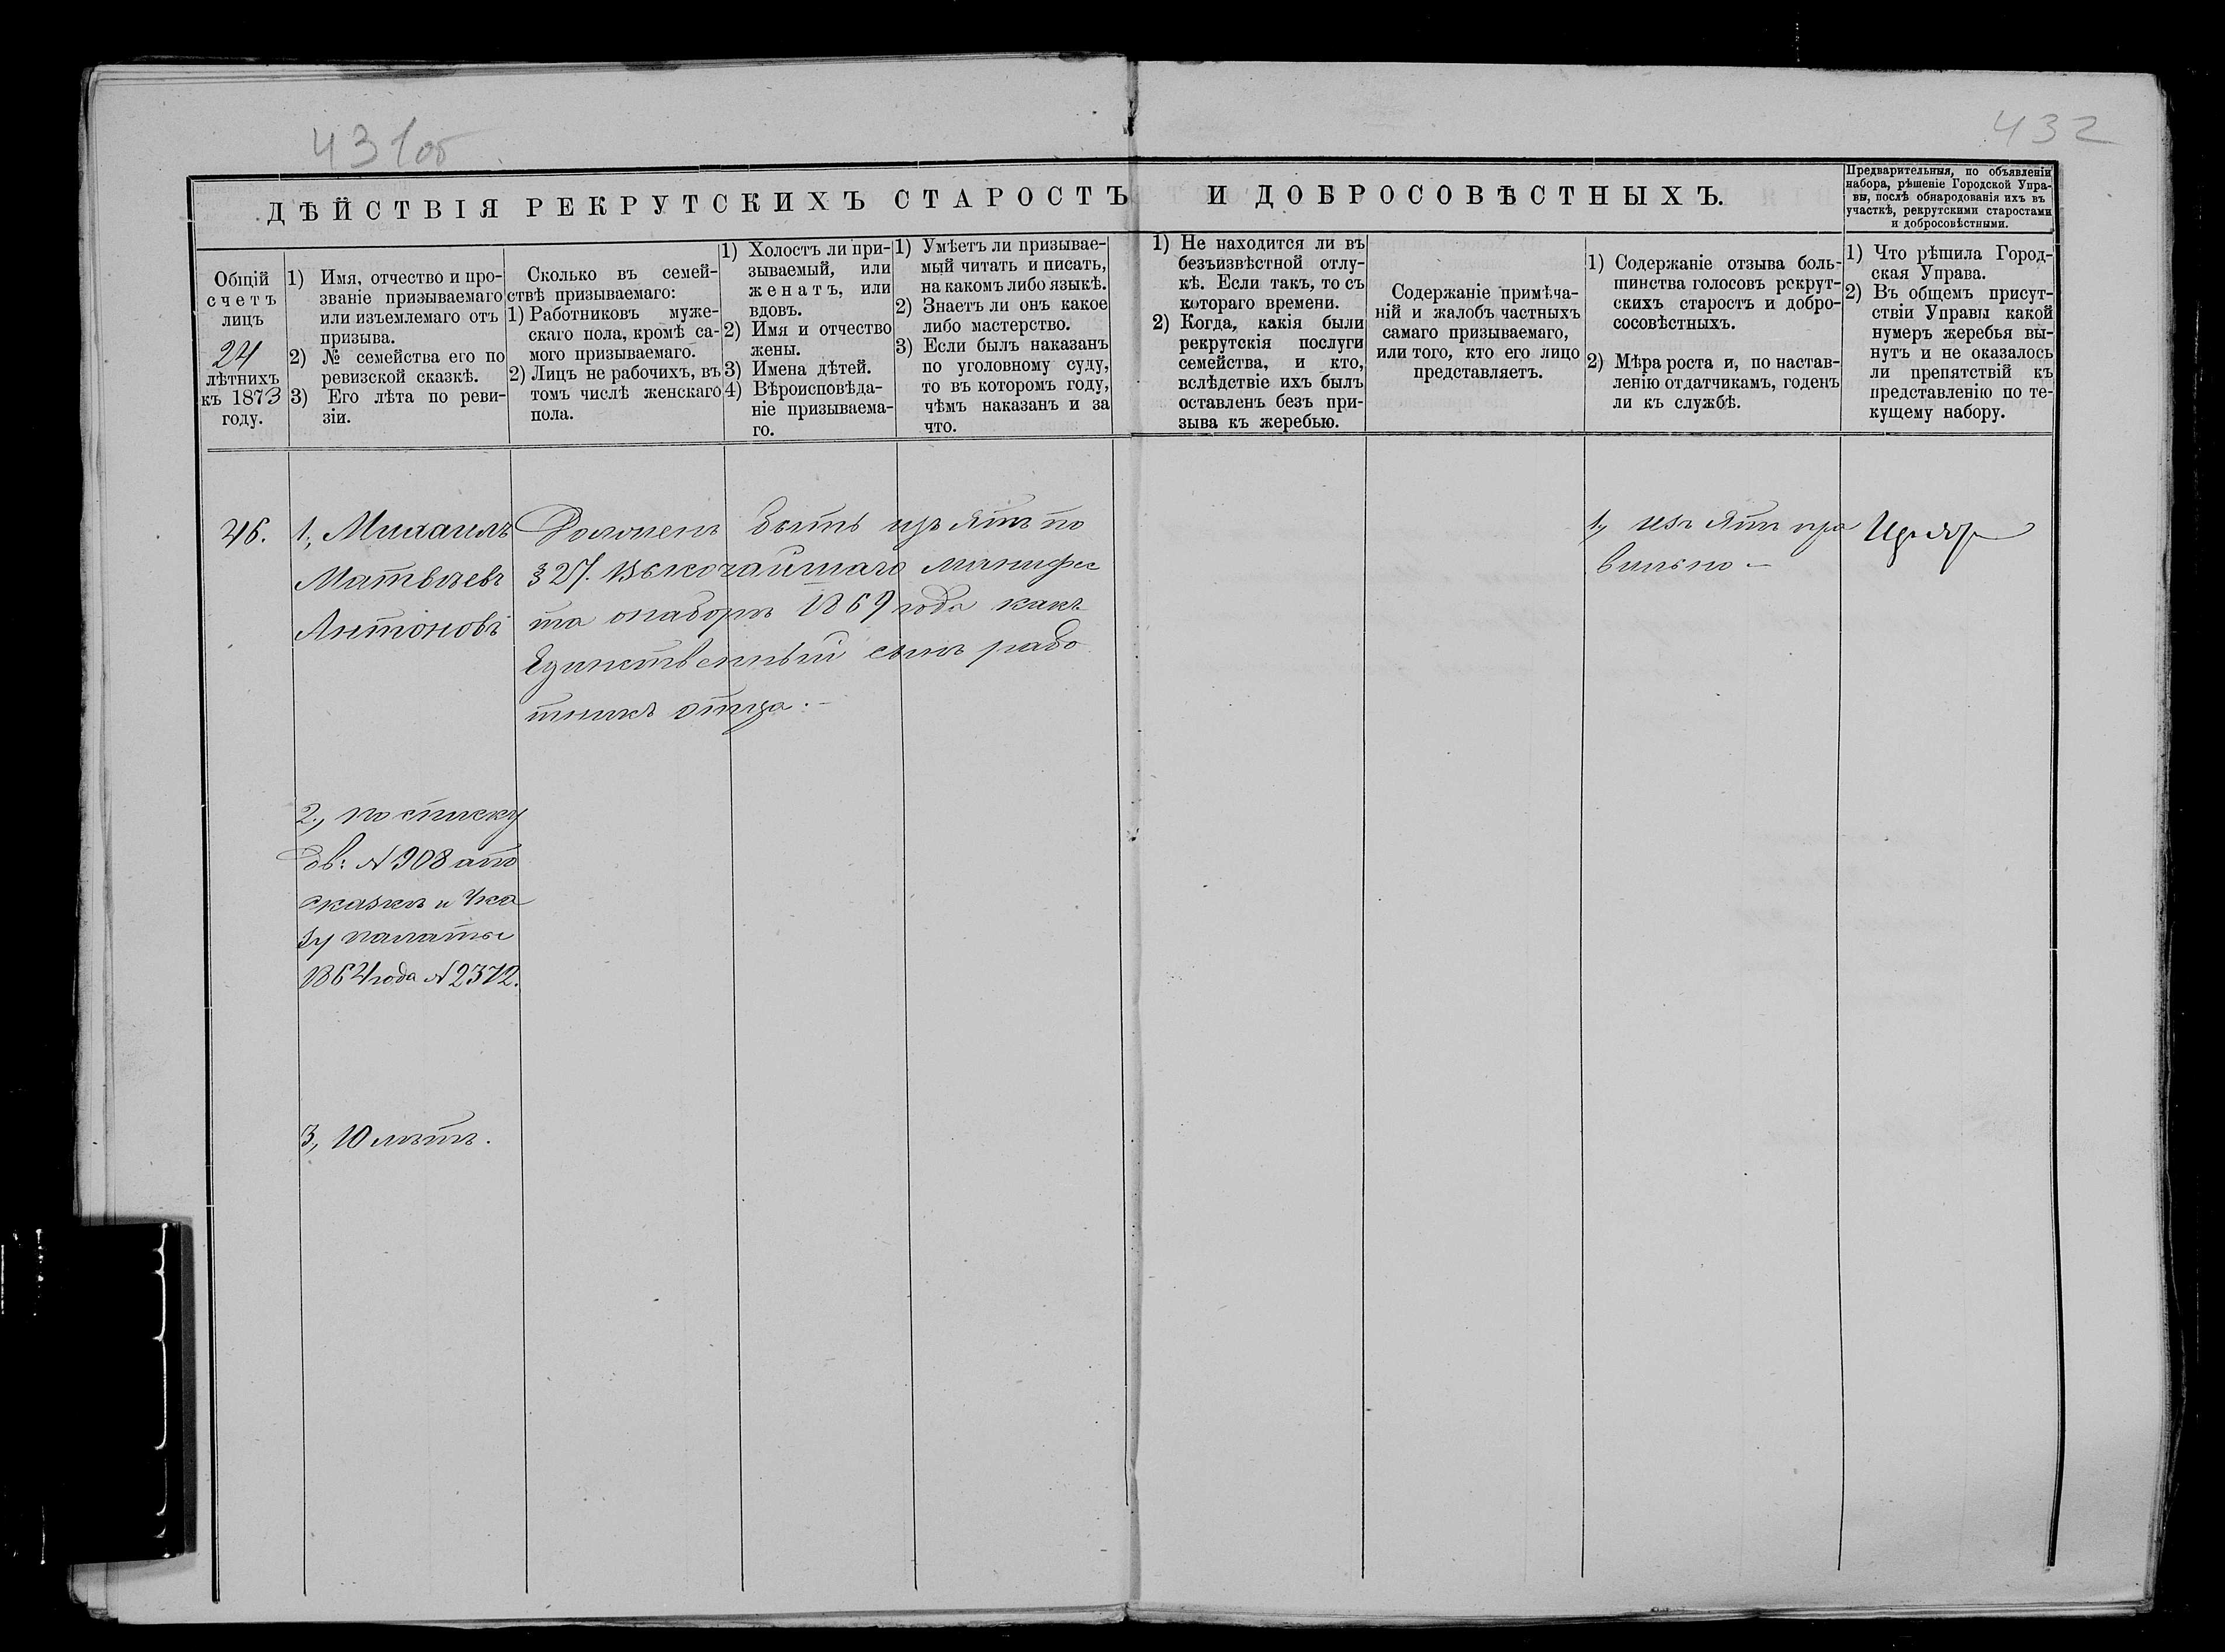 431 об
432
ДѢЙСТВІЯ РЕКРУТСКИХЪ СТАРОСТЪ И ДОБРОСОВѢСТНЫХЪ.
Предварительныя, по объявленіи
набора, рѣшеніе Городской Упра-
вы, послѣ обнародованія ихъ въ
участкѣ, рекрутскими старостами
и добросовѣстными.
Общій
счетъ
лицъ
24
лѣтнихъ
къ 1873
году.
1) Имя, отчество и про-
званіе призываемаго
или изъемлемаго отъ
призыва.
2) № семейства его по
ревизской сказкѣ.
3) Его лѣта по реви-
зіи.
Сколько въ семей-
ствѣ призываемаго:
1) Работниковъ муже-
скаго пола, кромѣ са-
мого призываемаго.
2) Лицъ не рабочихъ, въ
томъ числѣ женскаго
пола.
1) Холостъ ли при-
зываемый, или
женатъ, или
вдовъ.
2) Имя и отчество
жены.
3) Имена дѣтей.
4) Вѣроисповѣда-
ніе призываема-
го.
1) Умѣетъ ли призывае-
мый читать и писать,
на какомъ либо языкѣ.
2) Знаетъ ли онъ какое
либо мастерство.
3) Если былъ наказанъ
по уголовному суду,
то въ которомъ году,
чѣмъ наказанъ и за
что.
1) Не находится ли въ
безъизвѣстной отлу-
кѣ. Если такъ, то съ
котораго времени.
2) Когда, какія были
рекрутскія послуги
семейства, и кто,
вслѣдствіе ихъ былъ
оставленъ безъ при-
зыва къ жеребью.
Содержаніе примѣча-
ній и жалобъ частныхъ
самаго призываемаго,
или того, кто его лицо
представляетъ.
1) Содержаніе отзыва боль-
шинства голосовъ рекрут-
скихъ старостъ и добро-
сосовѣстныхъ.
2) Мѣра роста и, по настав-
ленію отдатчикамъ, годенъ
ли къ службѣ.
1) Что рѣшила Город-
ская Управа.
2) Въ общемъ присут-
ствіи Управы какой
нумеръ жеребья вы-
нутъ и не оказалось
ли препятствій къ
представленію по те-
кущему набору.
46.
1, Михаилъ
Матвѣевъ
Антоновъ
Долженъ быть изъятъ по
§ 27. Высочайшаго манифес
та о наборѣ 1869 года какъ
Единственный сынъ рабо
тникъ отца.—
2, по списку
Дов: № 908 а по
сказкѣ и Ука
зу палаты
1864 года № 2372.
3, 10 лѣтъ.
1, изъятъ пра
вильно —